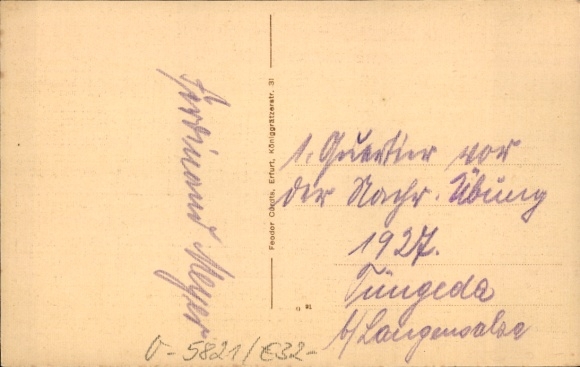 Ferdinand Meyer
Feodor Cürsts, Erfurt, Königgrätzerstr. 31
1. Quartier vor
der Nachr. Übung
1927.
Tüngeda
b/Langensalza
O-5821/€32-